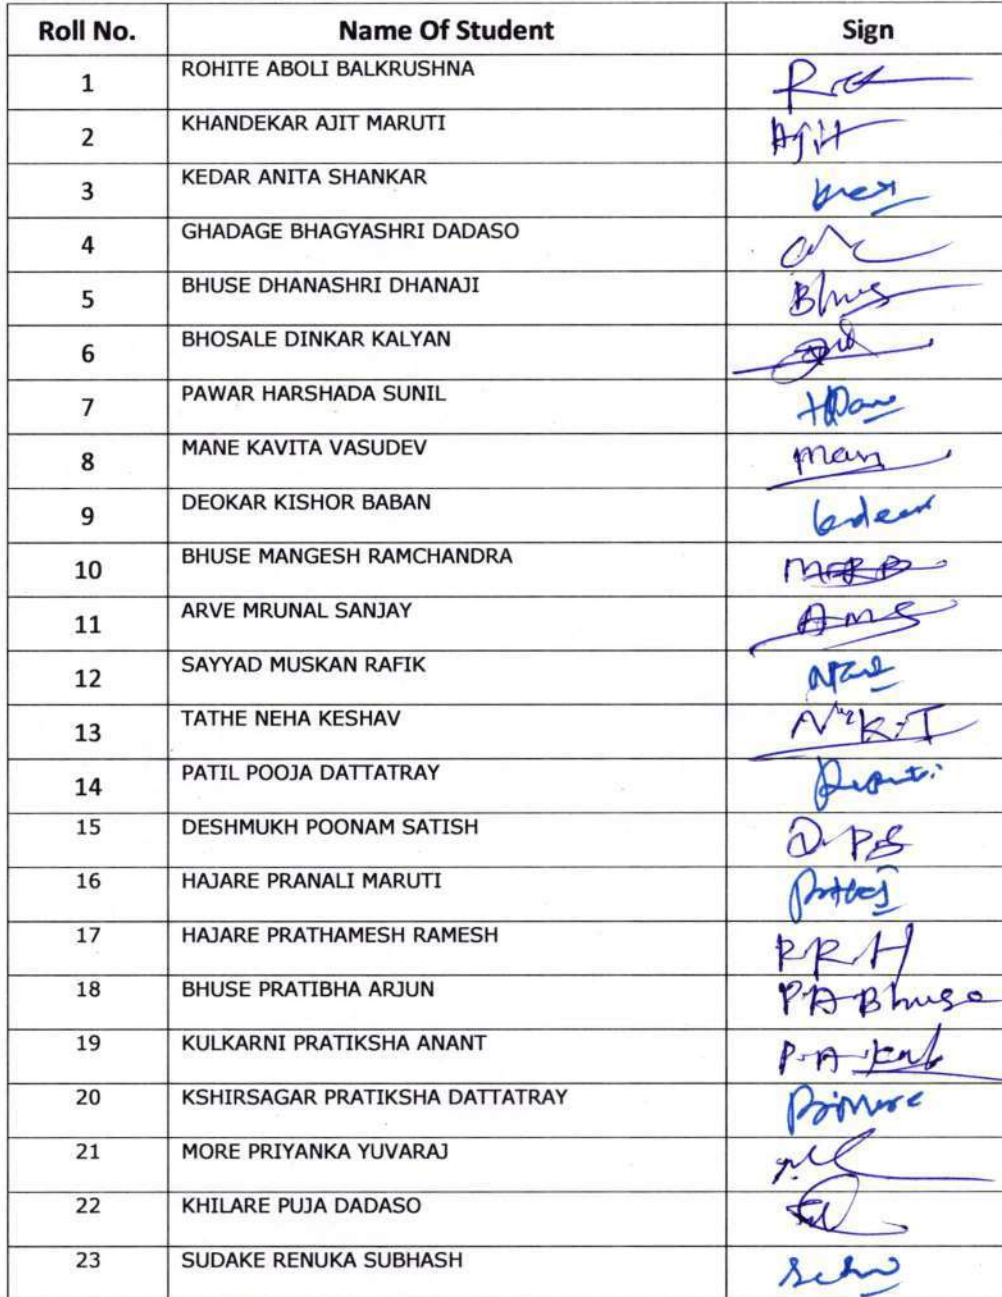 Roll No. Name Of Student Sign
1 ROHITE ABOLI BALKRUSHNA
2 KHANDEKAR AJIT MARUTI Ajit
3 KEDAR ANITA SHANKAR
4 GHADAGE BHAGYASHRI DADASO
5 BHUSE DHANASHRI DHANAJI Bhus
6 BHOSALE DINKAR KALYAN
7 PAWAR HARSHADA SUNIL
8 MANE KAVITA VASUDEV
9 DEOKAR KISHOR BABAN
10 BHUSE MANGESH RAMCHANDRA
11 ARVE MRUNAL SANJAY AMS
12 SAYYAD MUSKAN RAFIK
13 TATHE NEHA KESHAV
14 PATIL POOJA DATTATRAY
15 DESHMUKH POONAM SATISH
16 HAJARE PRANALI MARUTI
17 HAJARE PRATHAMESH RAMESH PRH
18 BHUSE PRATIBHA ARJUN P A Bhuse
19 KULKARNI PRATIKSHA ANANT
20 KSHIRSAGAR PRATIKSHA DATTATRAY
21 MORE PRIYANKA YUVARAJ
22 KHILARE PUJA DADASO
23 SUDAKE RENUKA SUBHASH